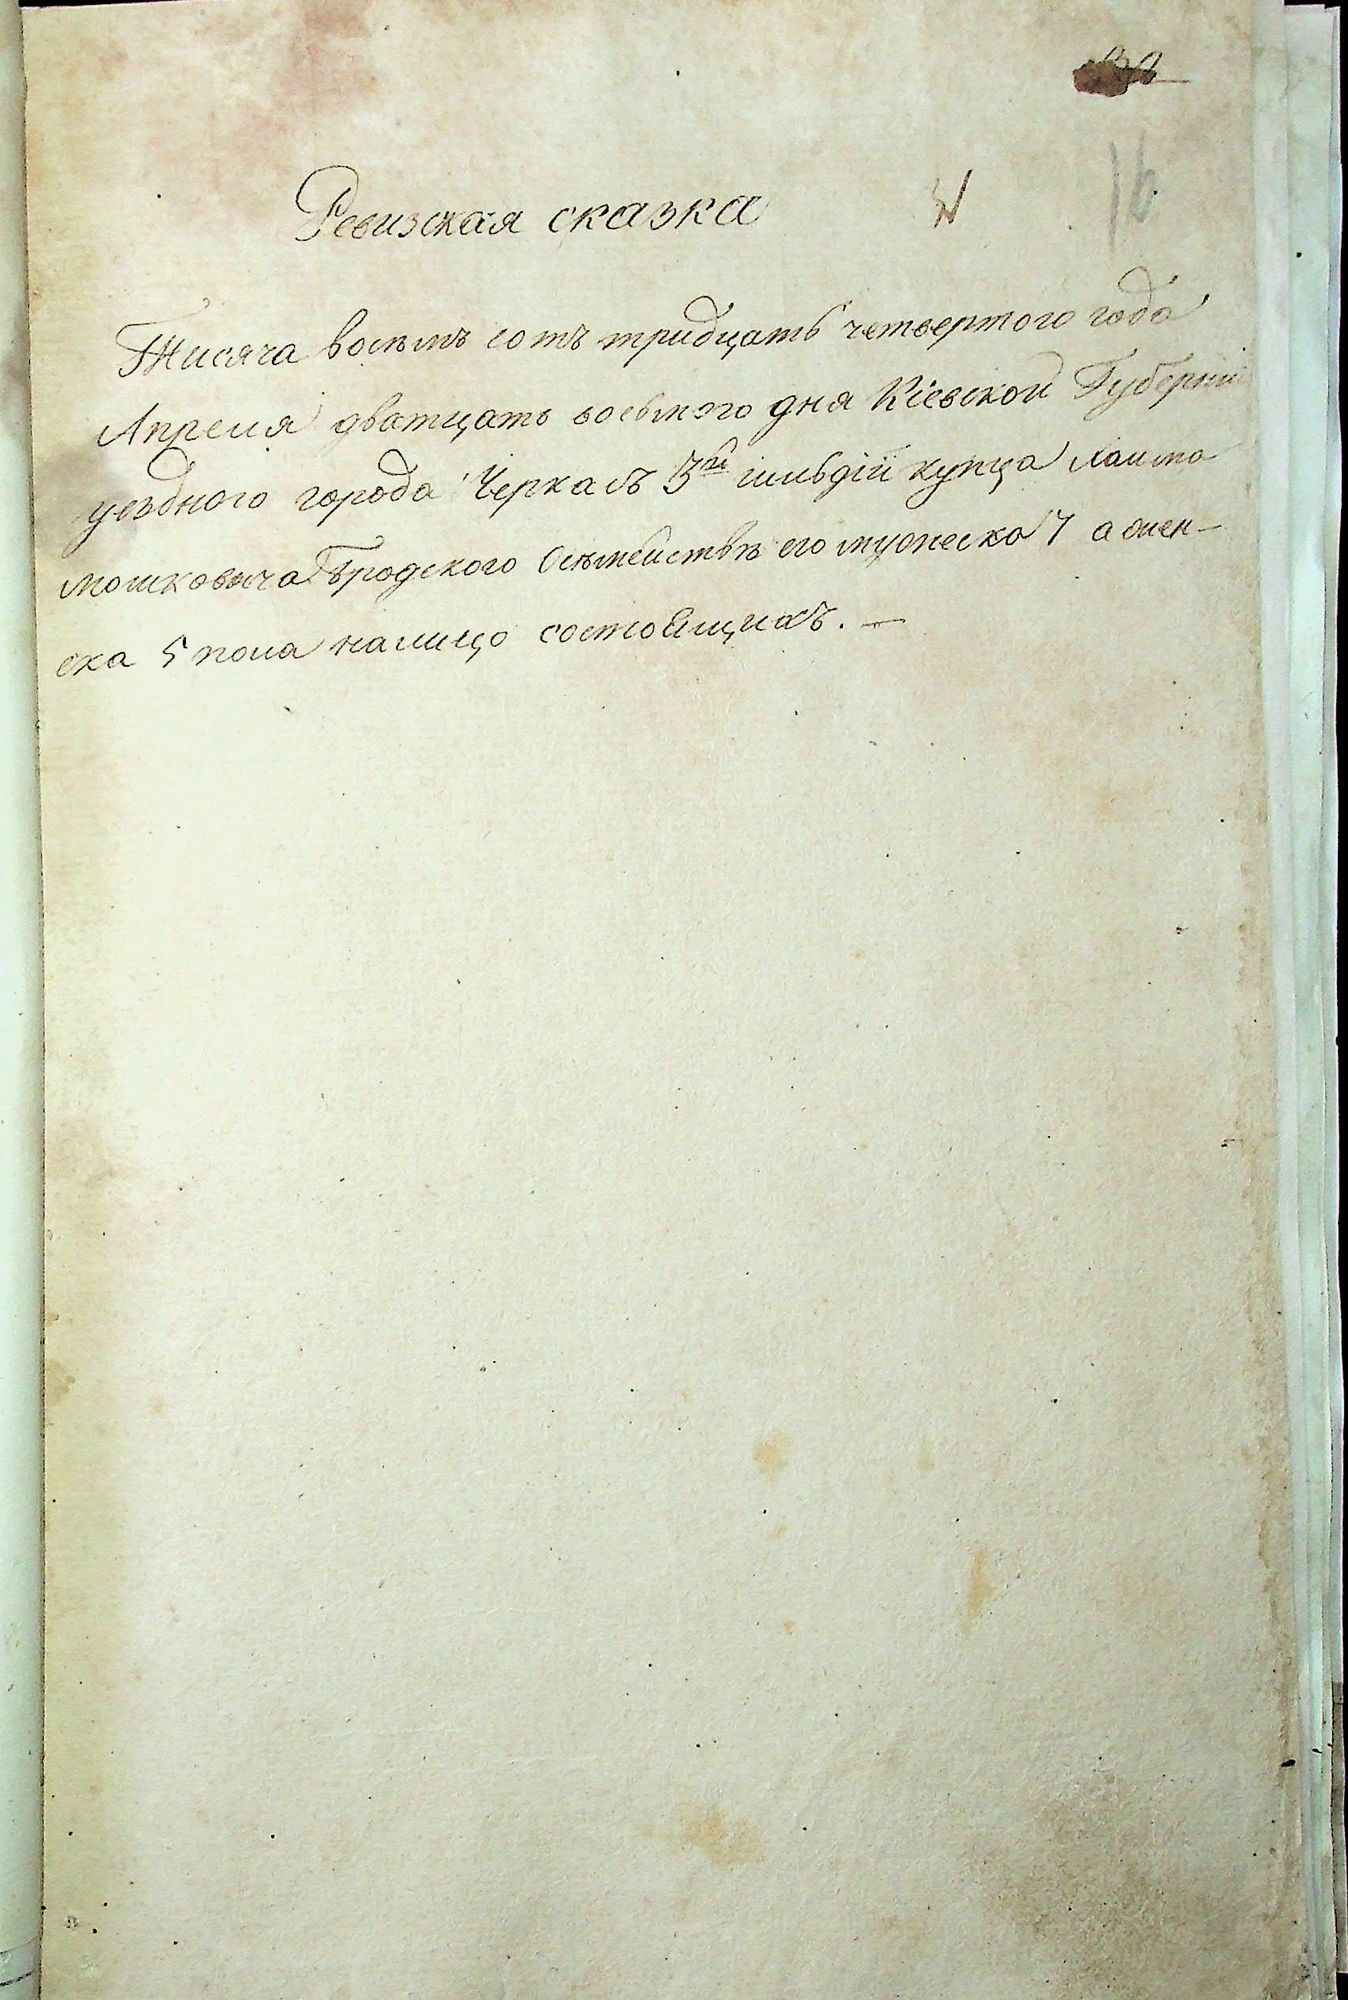 16
Ревизская сказка
Тисяча восѣмъ сотъ тридцать четвертого года
Апреля дватцать восьмого дня Кіевской Губерніи
уездного города Черкасъ 3й гильдіи купца Хаима
Мошковича Бродского Осѣмействѣ его мужеска 7 а жен-
ска 5 пола налицо состоящихъ. —